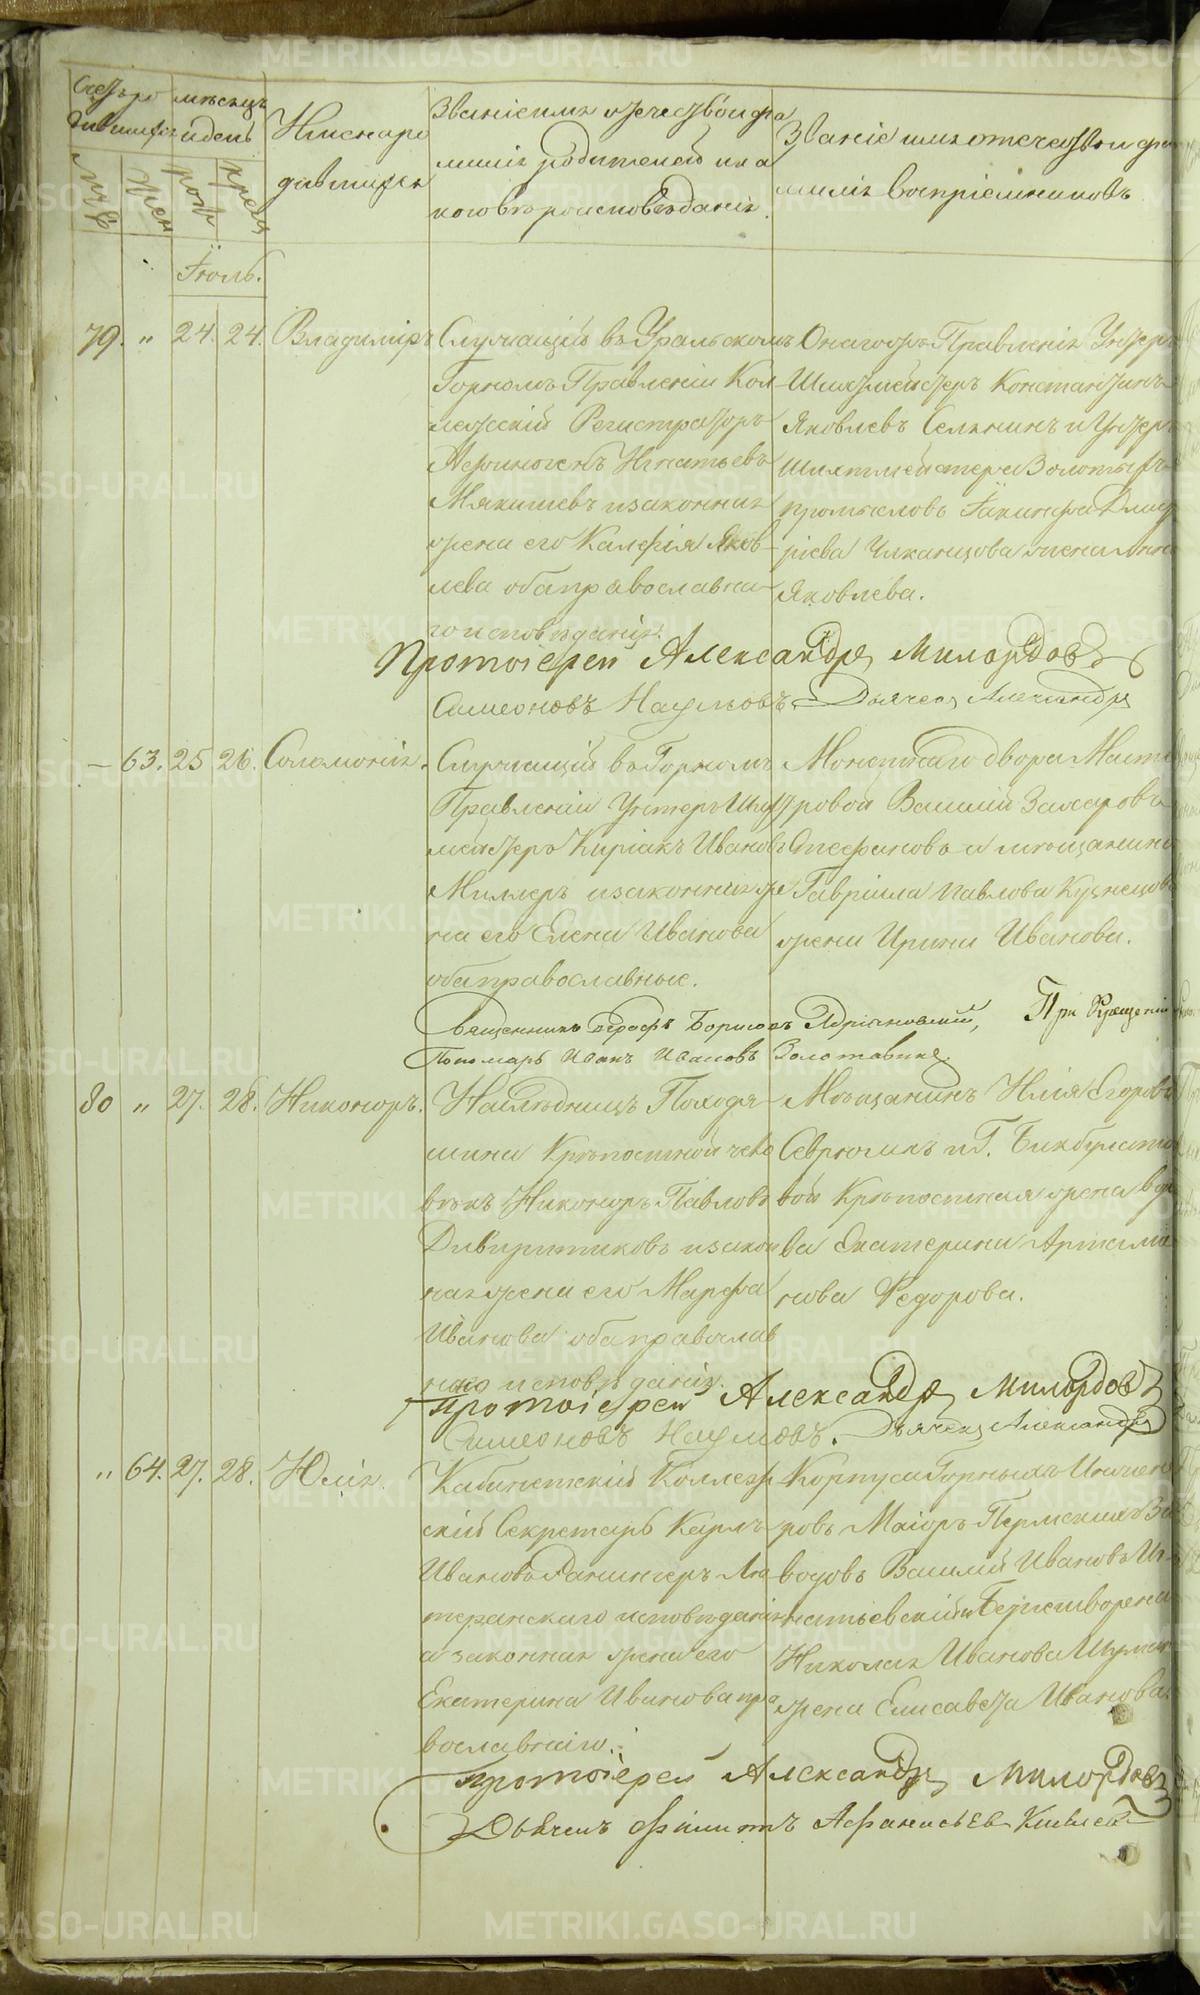 Счетъ ро
дившихся
Муж
Жен
мѣсяцъ
и день
рож
крещ
Имена ро
дившихся
Званіе имя отчество и фа
милія родителей и ка
кого вѣроисповѣданія.
Званіе имя отчество и фа
милія воспріемниковъ
Іюль.
79. " 24. 24. Владиміръ
Служащій въ Уральскомъ
Горномъ Правленіи Кол
лежскій Регистраторъ
Игнатьевъ
Мякишевъ и законная
жена его Калерія Яков
лева оба православна
го исповѣданія.
Онагожъ Правленія Унтеръ
Шихтмейстеръ Константинъ
Яковлевъ и Унтеръ
Шихтмейстера Золотыхъ
промысловъ Іакинфа Дмит
ріева жена Анна
Яковлева.
Протоіерей Александръ Милордовъ
Симеоновъ Наумовъ. Дьячекъ Александръ
— 63. 25 26. Соломонія.
Служащій въ Горномъ
Правленіи Унтеръ Шихт
мейстеръ Киріакъ Ивановъ
Миллеръ и законная же
на его Елена Иванова
оба православные.
Монетнаго двора Масте
ровой Василій Захаровъ
Стефановъ и мѣщанина
Гавріила Павлова Кузнецова
жена Ирина Иванова.
Священникъ Борисовъ Адріановскій,
При Крещеніи
Пономарь Иванъ Ивановъ Золотавинъ.
80 " 27. 28. Никоноръ.
Наслѣдницъ Походя
шина Крѣпостной чело
вѣкъ Никоноръ Павловъ
и закон
ная жена его Марфа
Иванова оба православ
наго исповѣданія.
Мѣщанинъ Илія Егоровъ
Севрюгинъ и Г.
вой Крѣпостная жена вдо
ва Екатерина Артамо
нова Федорова.
Протоіерей Александръ Милордовъ
Симеоновъ Наумовъ. Дьячекъ Александръ
" 64. 27. 28. Юлія.
Кабинетскій Коллеж
скій Секретарь Карлъ
Ивановъ Лю
теранскаго исповѣданія
а законная жена его
Екатерина Иванова пра
вославнаго.
Корпуса Горныхъ Инжене
ровъ Маіоръ Пермскихъ За
водовъ Василій Ивановъ Иг
натьевскій и
Николая Иванова
жена Елисавета Иванова.
Протоіерей Александръ Милордовъ
Дьячекъ Филиппъ Афанасьевъ
METRIKI.GASO-URAL.RU